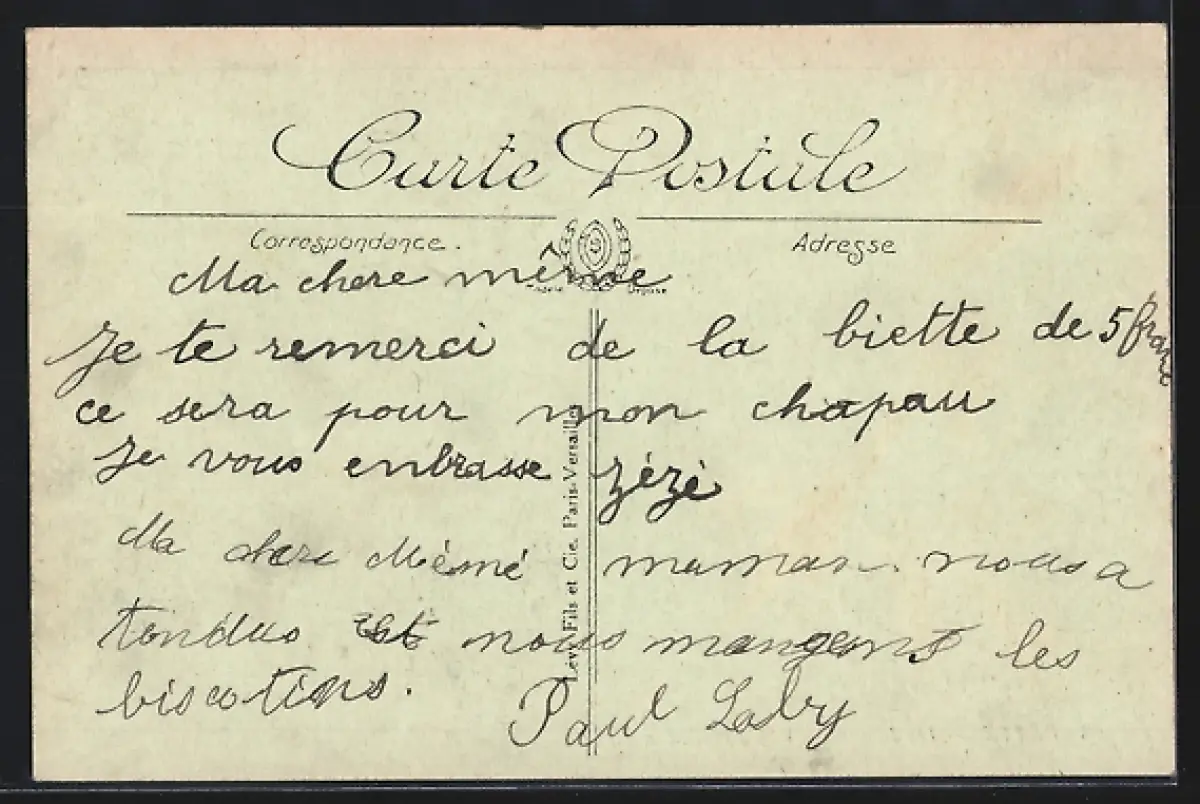 Carte Postale
Correspondance.
Adresse
Ma chere mémé
Je te remerci de la biette de 5 franc
ce sera pour mon chapau
Je vous enbrasse zézé
Ma chere Mémé maman nous a
tondus et nous mangeons les
biscotins.
Paul Ladry
Lévy Fils et Cie. Paris-Versailles